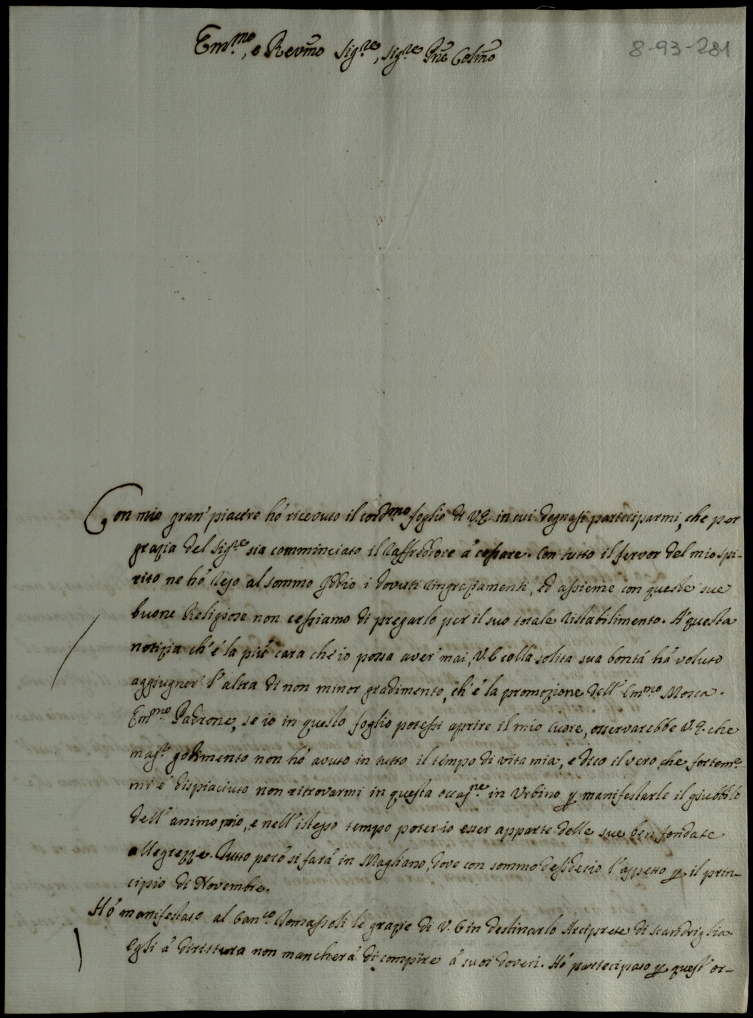 Em.mo, e Reu.mo Sig.re, Sig.re P̃ne Colmo
8-93-281
Con mio gran' piacere hó ricevuto il cord.mo foglio di V.E. in cui degnasi parteciparmi, che per
grazia del Sig.re sia comminciato il Raffredore á cessare. Con tutto il fervor del mio spi-
rito ne hó reso al sommo Iddio i dovuti ringraziamenti, ed assieme con queste sue
buone Religiose non cessiamo di pregarlo per il suo totale ristabilimento. A' questa
notizia ch' é la piú cara che io possa aver mai, V.E. colla solita sua bontá há voluto
aggiugner' l'altra di non minor gradimento, ch' é la promozione dell' Em.mo Mosca.
Em.mo Padrone, se io in questo foglio potessi aprire il mio Cuore, osservarebbe V.E. che
mag.r godimento non hó avuto in tutto il tempo di vita mia, e dico il vero che fortem.e
mi é dispiaciuto non ritrovarmi in questa occas.ne in Urbino p manifestarle il giubbilo
dell' animo mio, e nell' istesso tempo poter io esser apparte delle sue ben fondate
allegrezze. Tutto peró si fará in Magliano, dove con sommo desiderio l'aspetto p il prin-
cipio di Novembre.
Hó manifestato al Can.co Tomassoli le grazie di V.E. in destinarlo Arciprete di Scandriglia
Egli á dirittura non mancherá di compire á suoi doveri. Hó partecipato p quest' or-